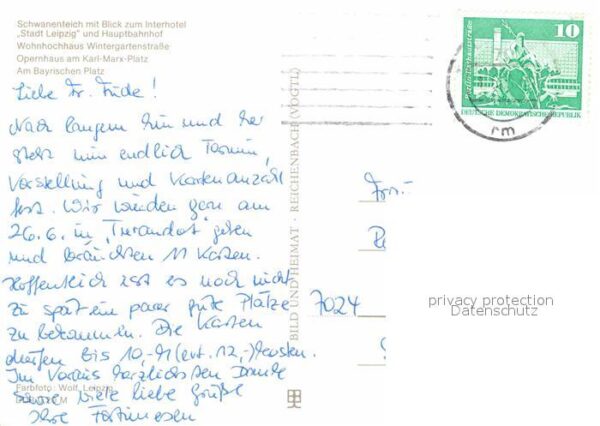 Schwanenteich mit Blick zum Interhotel
„Stadt Leipzig" und Hauptbahnhof
Wohnhochhaus Wintergartenstraße
Opernhaus am Karl-Marx-Platz
Am Bayrischen Platz
Liebe Fr. !
Nach langem hin und her
steht nun endlich Termin,
Vorstellung und Kartenanzahl
fest. Wir würden gern am
26.6. in „Turandot" gehen
und bräuchten 11 Karten.
Hoffentlich ist es noch nicht
zu spät ein paar gute Plätze
zu bekommen. Die Karten
dürfen bis 10,-M (evt. 12,-) kosten.
Im Voraus herzlichsten Dank
sowie viele liebe Grüße
Ihre
Farbfoto: Wolf, Leipzig
BILD UND HEIMAT REICHENBACH (VOGTL)
10
DEUTSCHE DEMOKRATISCHE REPUBLIK
rm
7024
privacy protection
Datenschutz